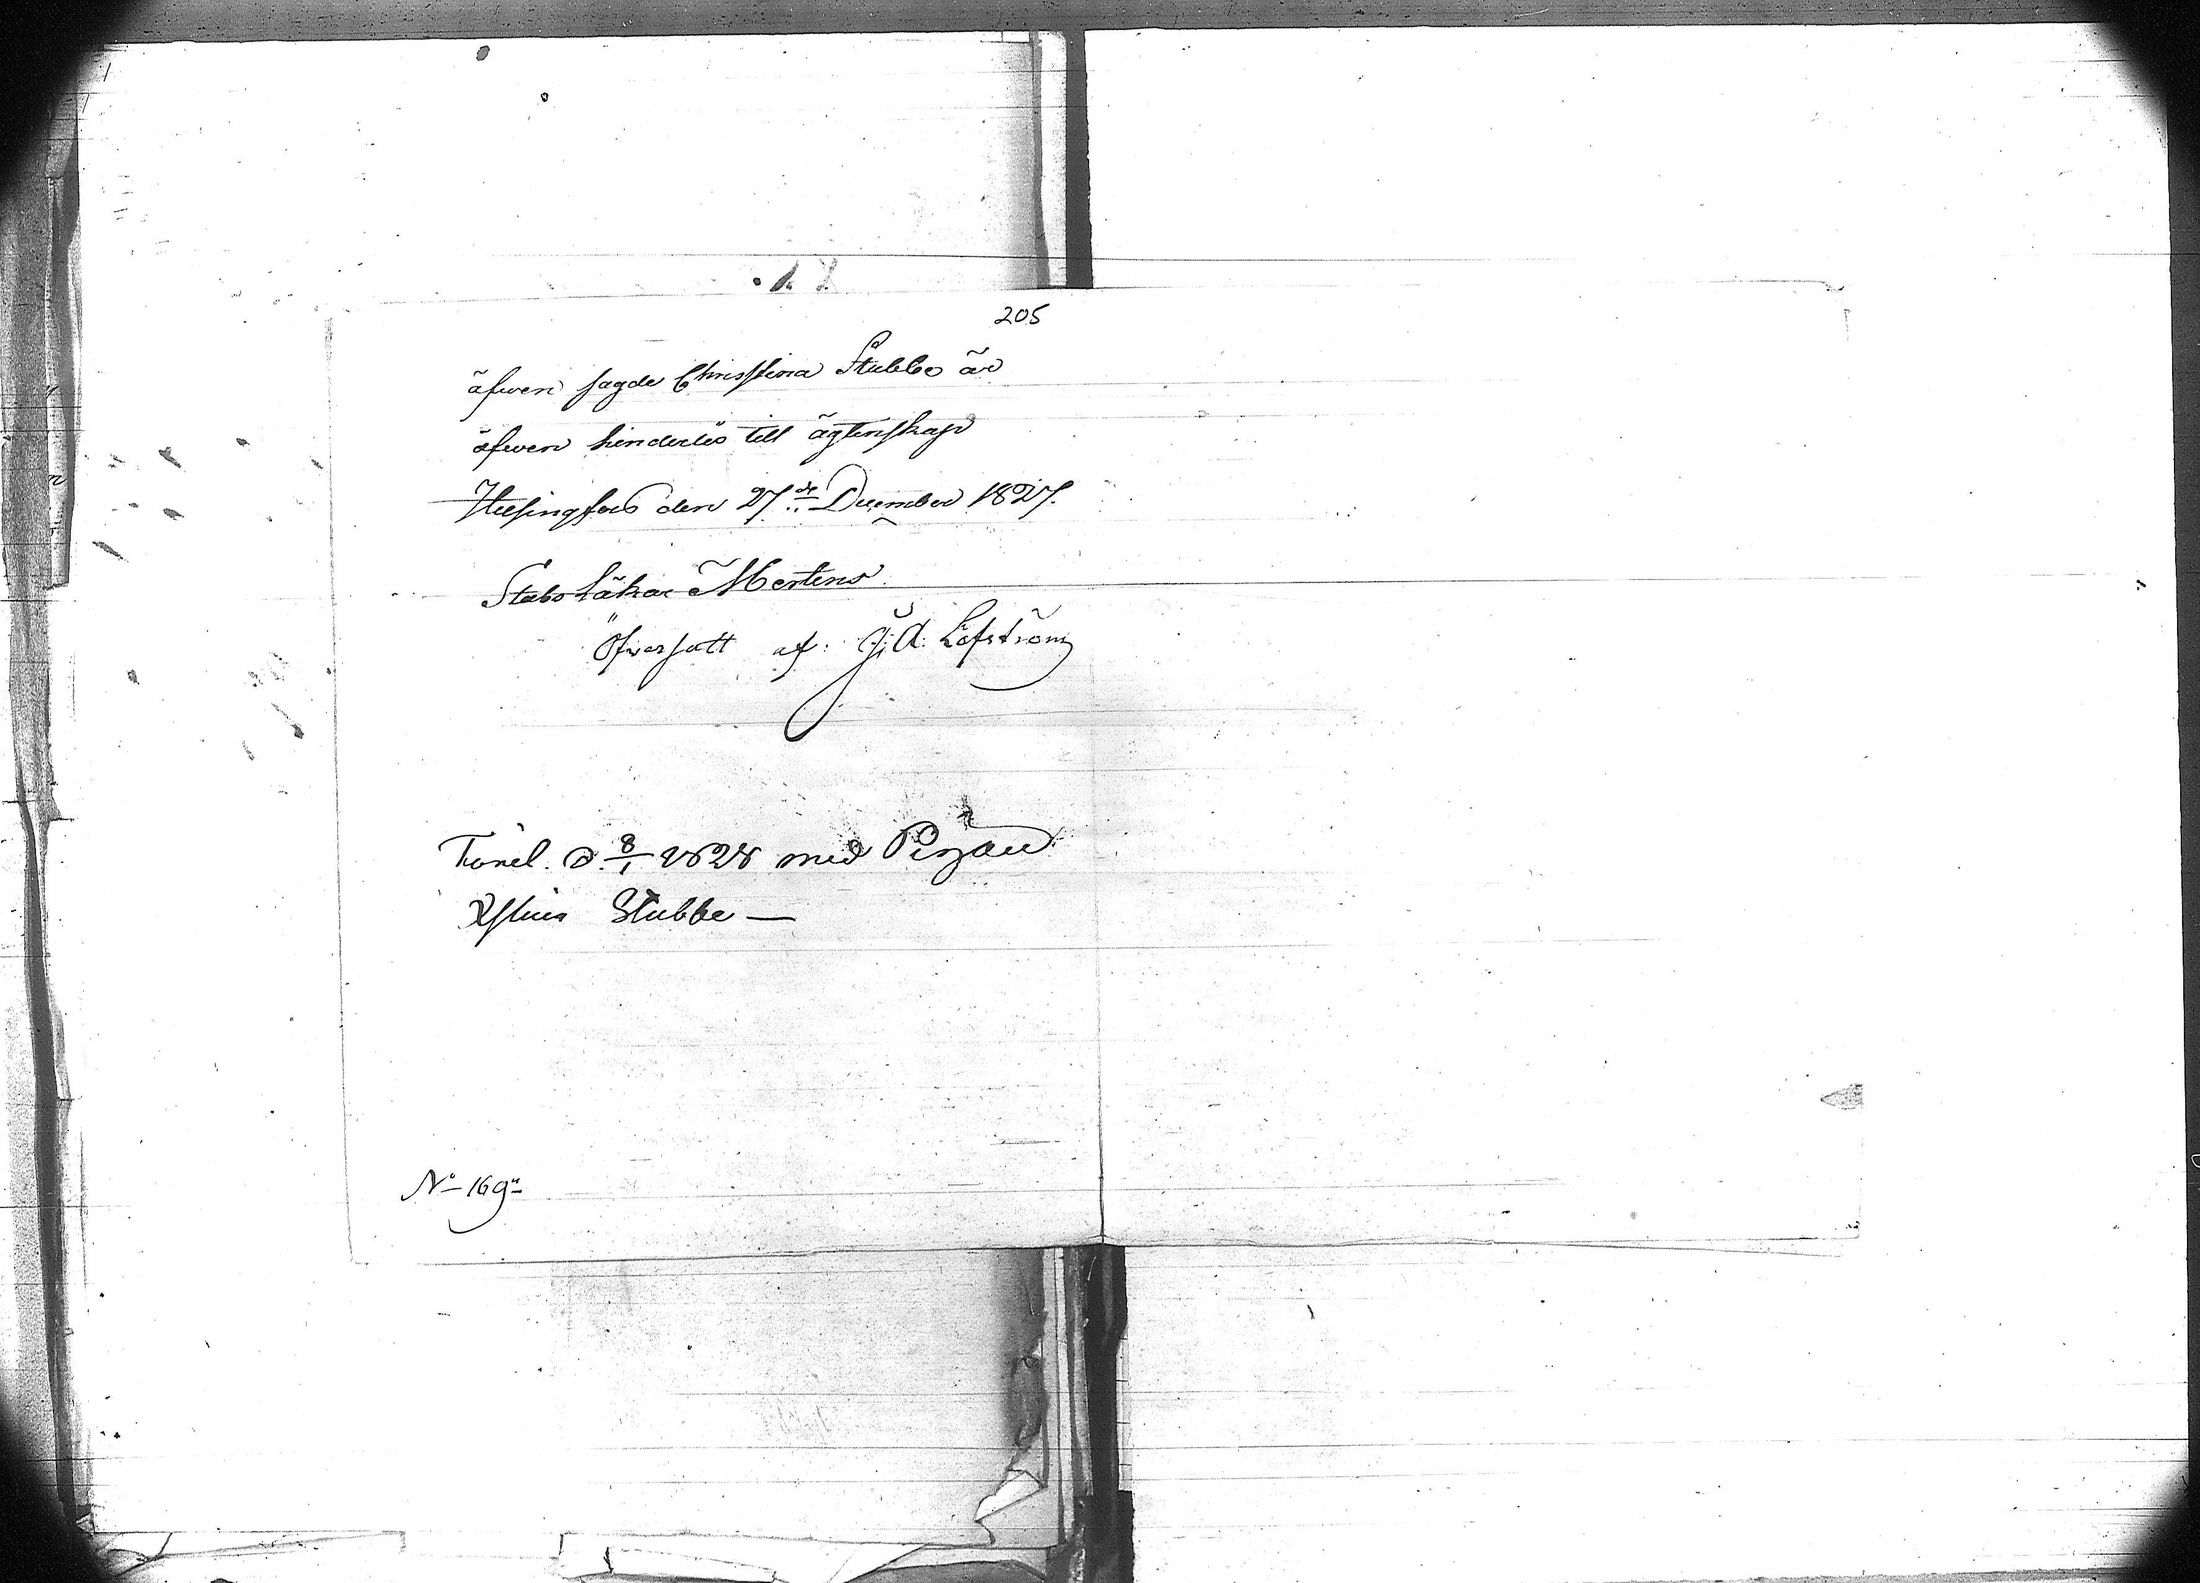 205
äfwen sagde Christina Stubbe är
äfwen hinderlös till ägtenskap
Helsingfors den 27de December 1827.
Stabsläkar Mertens
Öfversatt af: J: A: Löfström
d. 8/1 1828 med Pigan
Xstina Stubbe —
No 169.